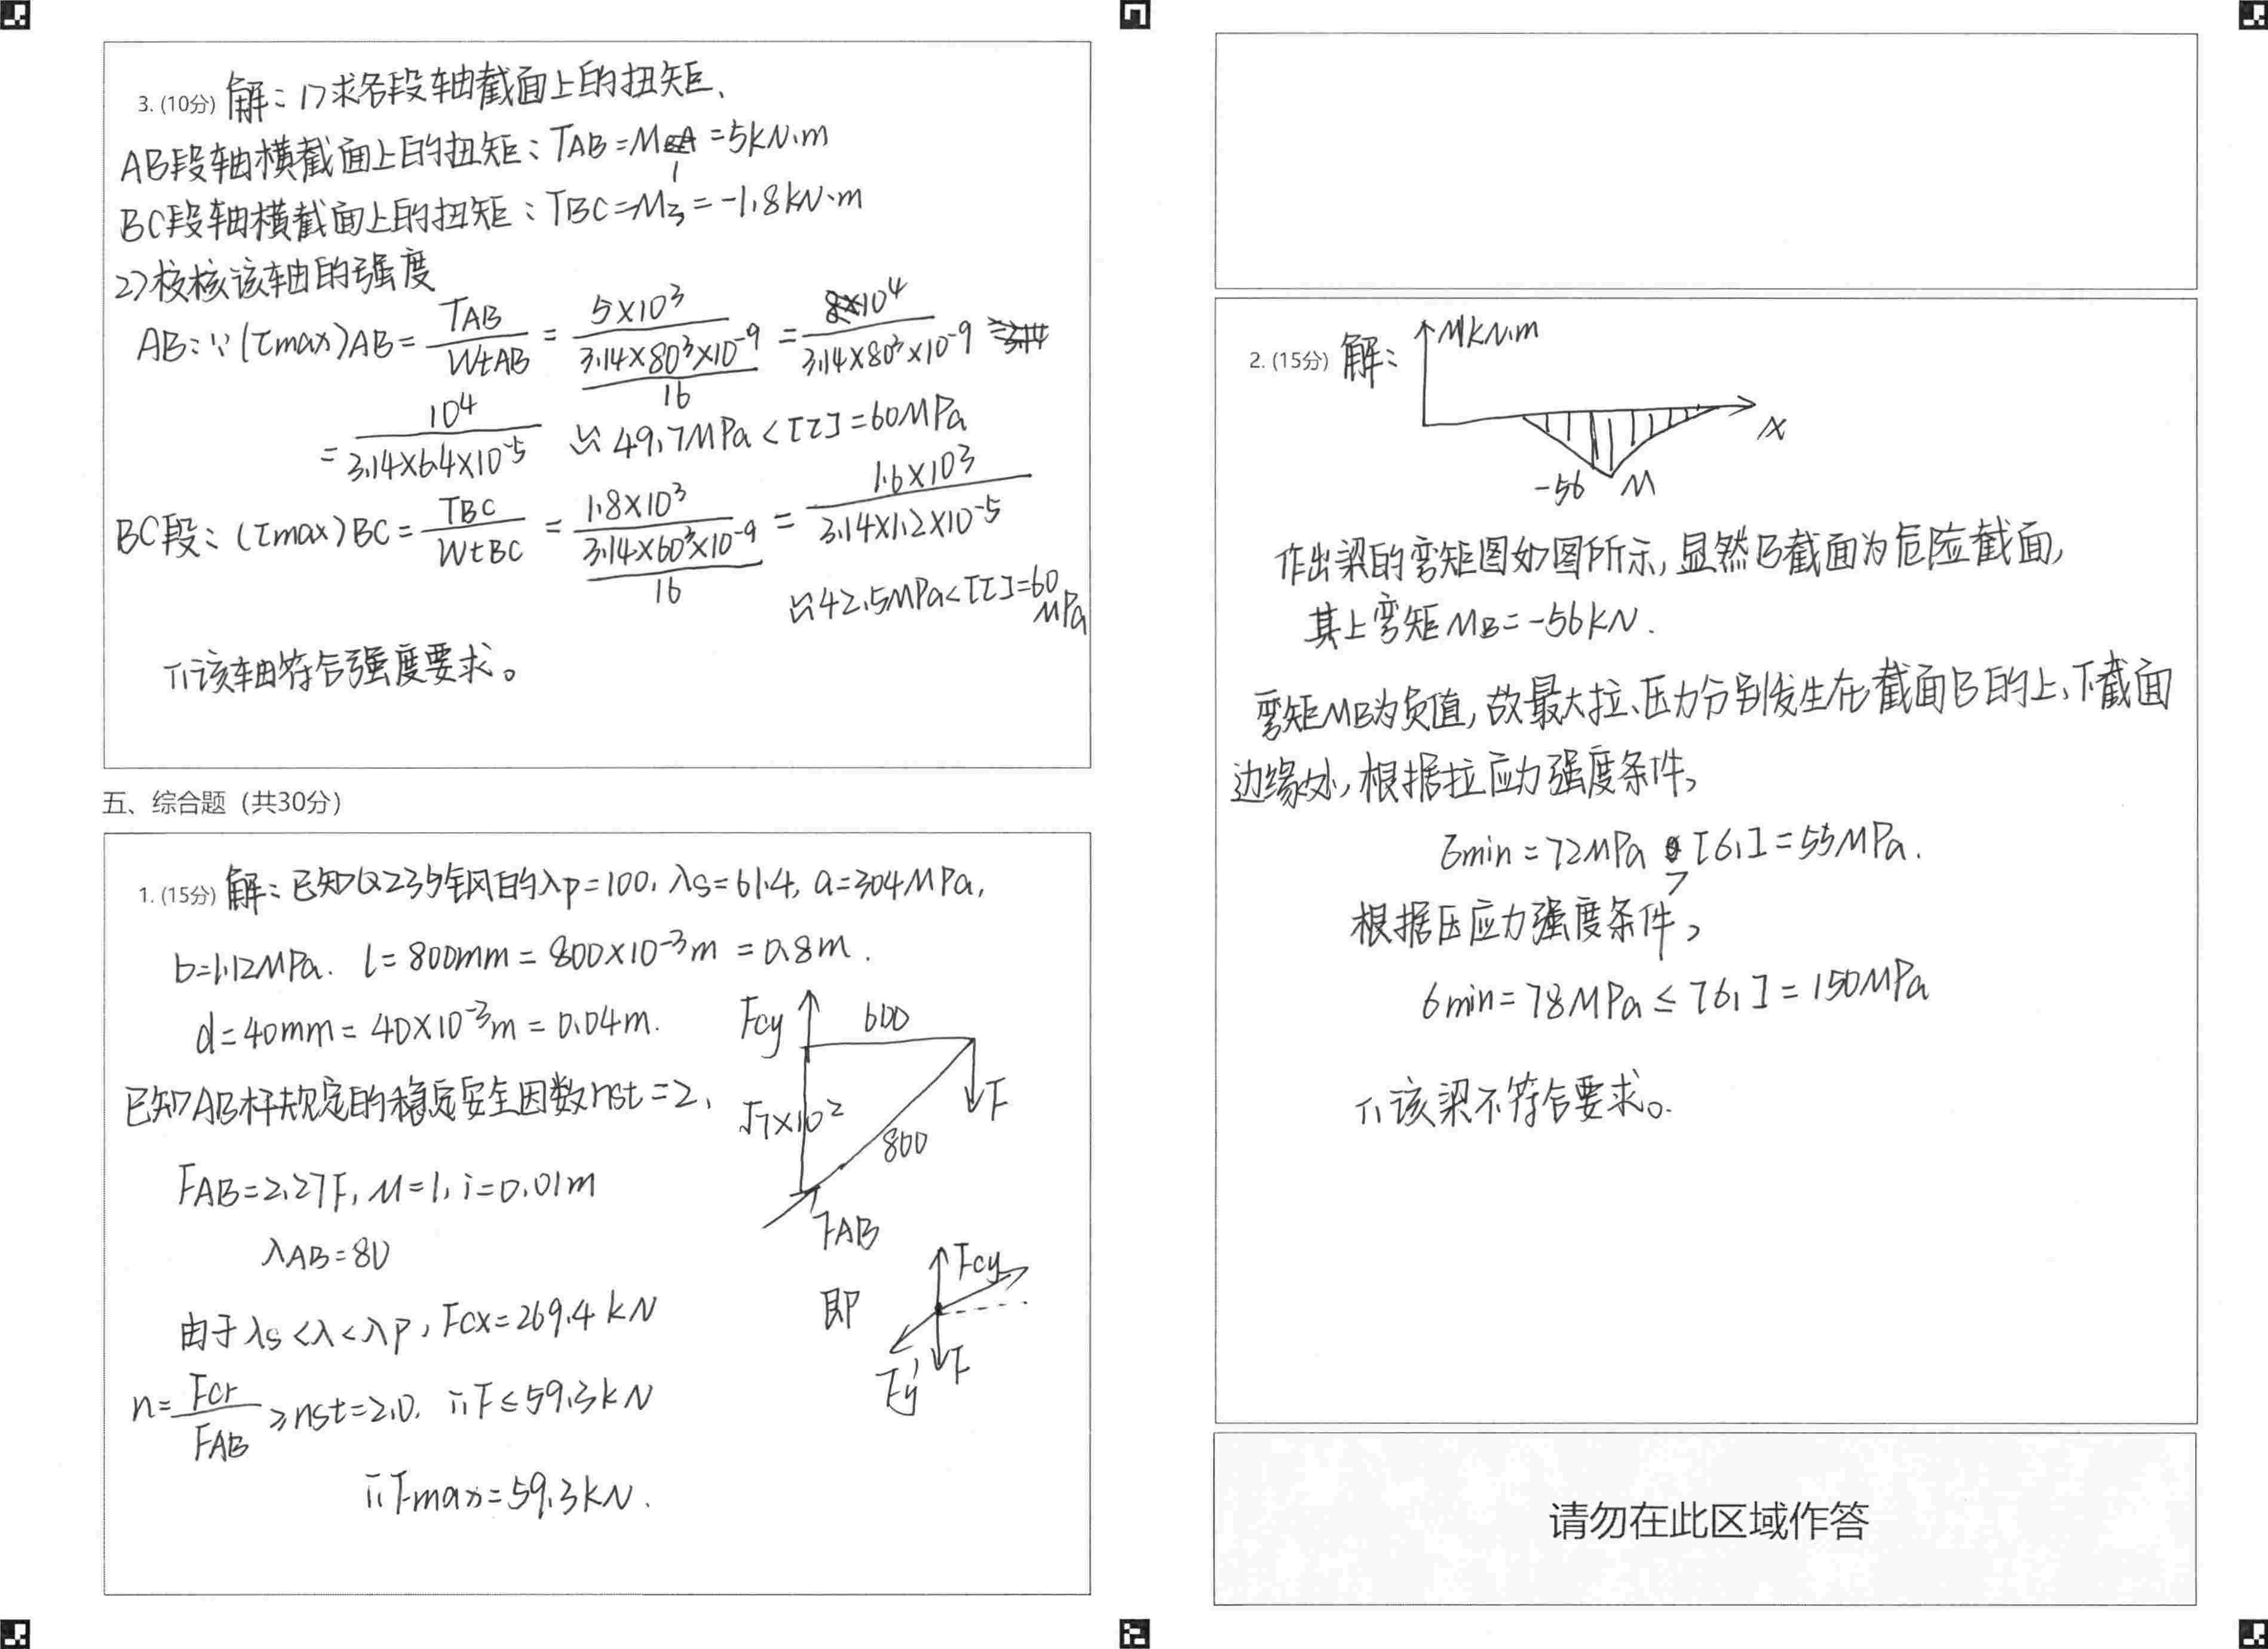 3. (10分) 解: 1)求各段轴截面上的扭矩、
AB段轴横截面上的扭矩: TAB=M1=5kN·m
BC段轴横截面上的扭矩: TBC=M3=-1.8kN·m
2)校核该轴的强度
AB: ∵ (τmax)AB= TAB/WtAB = 5×10³/(3.14×80³×10⁻⁹/16) = 8×10⁴/(3.14×80³×10⁻⁹)
= 10⁴/(3.14×6.4×10⁻⁵) ≈ 49.7MPa<[τ]=60MPa
BC段: (τmax)BC= TBC/WtBC = 1.8×10³/(3.14×60³×10⁻⁹/16) = 1.6×10³/(3.14×1.2×10⁻⁵)
≈42.5MPa<[τ]=60MPa
∴该轴符合强度要求。
五、综合题 (共30分)
1. (15分) 解: 已知Q235钢的λp=100, λs=61.4, a=304MPa,
b=1.12MPa. l=800mm=800×10⁻³m=0.8m.
d=40mm=40×10⁻³m=0.04m.
已知AB杆规定的稳定安全因数nst=2,
FAB=2.27F, μ=1, i=0.01m
λAB=80
由于λs<λ<λp, Fcx=269.4kN
n= Fcr/FAB ≥nst=2.0. ∴F≤59.3kN
∴Fmax=59.3kN.
Fcy
600
√7×10²
800
F
FAB
即
Fcy
Fy'
F
2. (15分) 解:
M kN·m
x
-56 M
作出梁的弯矩图如图所示, 显然B截面为危险截面,
其上弯矩MB=-56kN.
弯矩MB为负值, 故最大拉、压力分别发生在截面B的上、下截面
边缘处, 根据拉应力强度条件,
σmin=72MPa > [σ1]=55MPa.
根据压应力强度条件,
σmin=78MPa≤[σ1]=150MPa
∴该梁不符合要求。
请勿在此区域作答